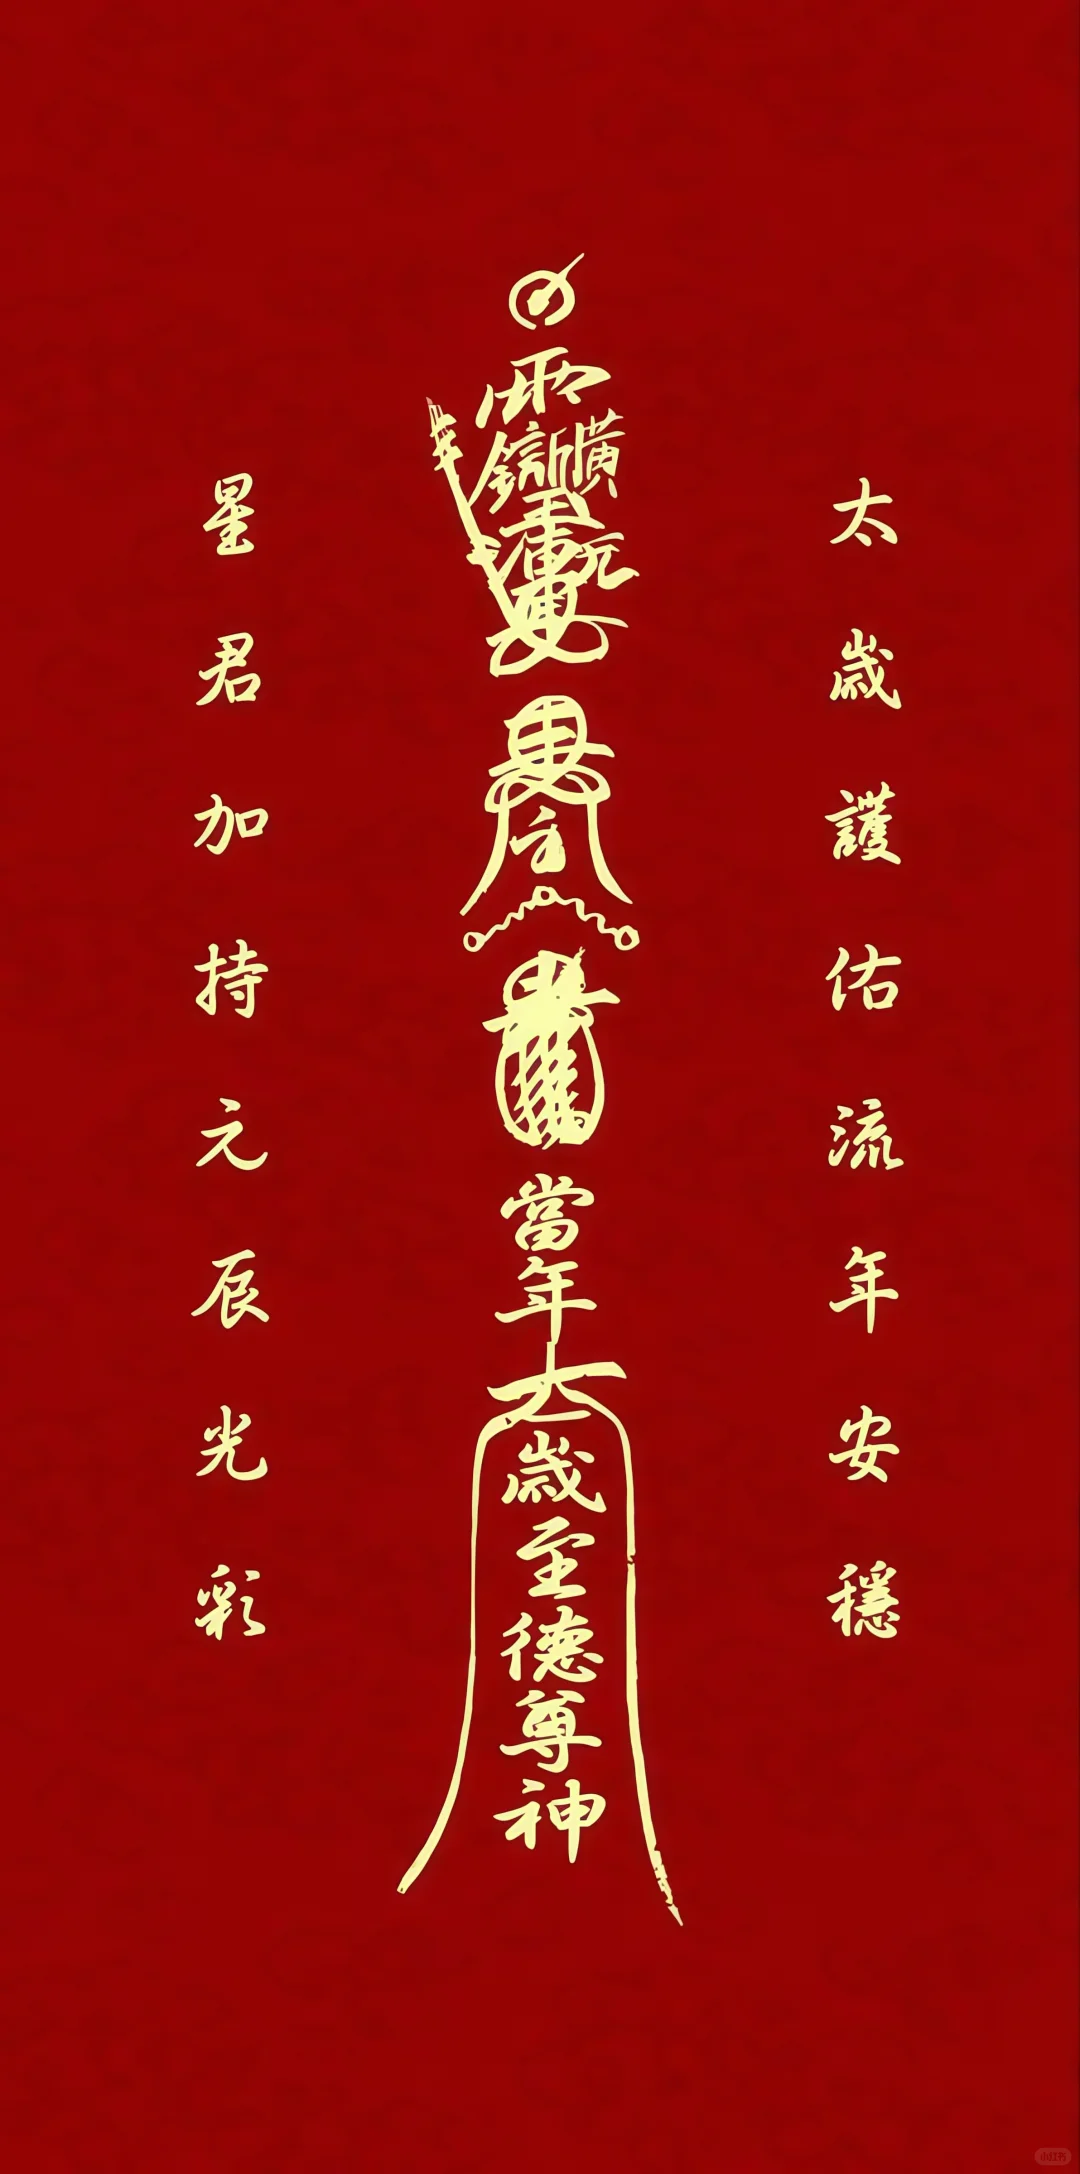 太歲護佑流年安穩
當年大歲至德尊神
星君加持元辰光彩
小红书